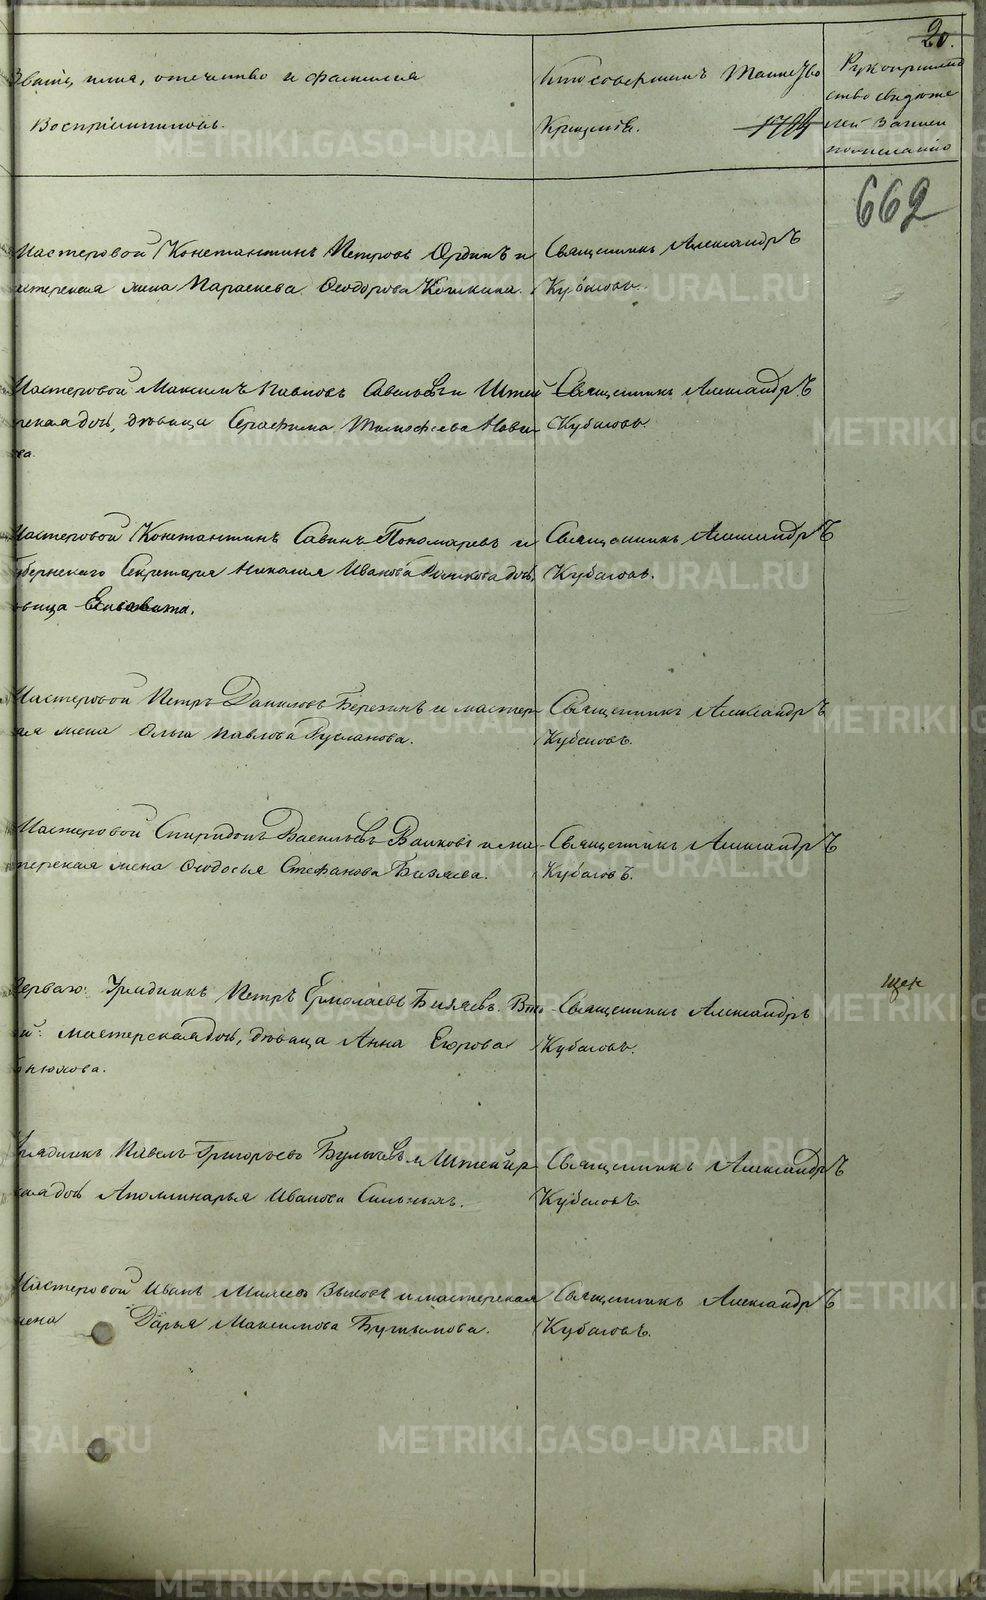 20.
Званіе, имя, отчество и фамилія
Воспріемниковъ.
Кто совершалъ Таинство
Крещенія.
1794
Рукоприклад
ство свидѣте
лей записи
по желанію
662
Мастеровой Константинъ Петровъ Ординъ и
мастерская жена Параскева Ѳеодорова Кошкина.
Священникъ Александръ
Кубасовъ.
Мастеровой Максимъ Павловъ Савельевъ и Штей
дочь, дѣвица Серафима Тимофеева
Священникъ Александръ
Кубасовъ.
Мастеровой Константинъ Савинъ Пономаревъ и
Губернскаго Секретаря Николая Иванова дочь,
дѣвица Елисавета.
Священникъ Александръ
Кубасовъ.
Мастеровой Петръ Даниловъ Березинъ и мастер
ская жена Ольга Павлова Русланова.
Священникъ Александръ
Кубасовъ.
Мастеровой Спиридонъ Васильевъ Волковъ и ма
терская жена Ѳеодосья Стефанова Бизяева.
Священникъ Александръ
Кубасовъ.
Перваго: Урядникъ Петръ Ермолаевъ Бизяевъ. Вто
ой: мастерская дочь, дѣвица Анна Егорова
Священникъ Александръ
Кубасовъ.
Урядникъ Павелъ Григорьевъ Булычевъ и Штейгер
ская дочь Аполлинарья Иванова Сильныхъ.
Священникъ Александръ
Кубасовъ.
Мастеровой Иванъ Милеевъ Быковъ и мастерская
жена Дарья Максимова
Священникъ Александръ
Кубасовъ.
METRIKI.GASO-URAL.RU